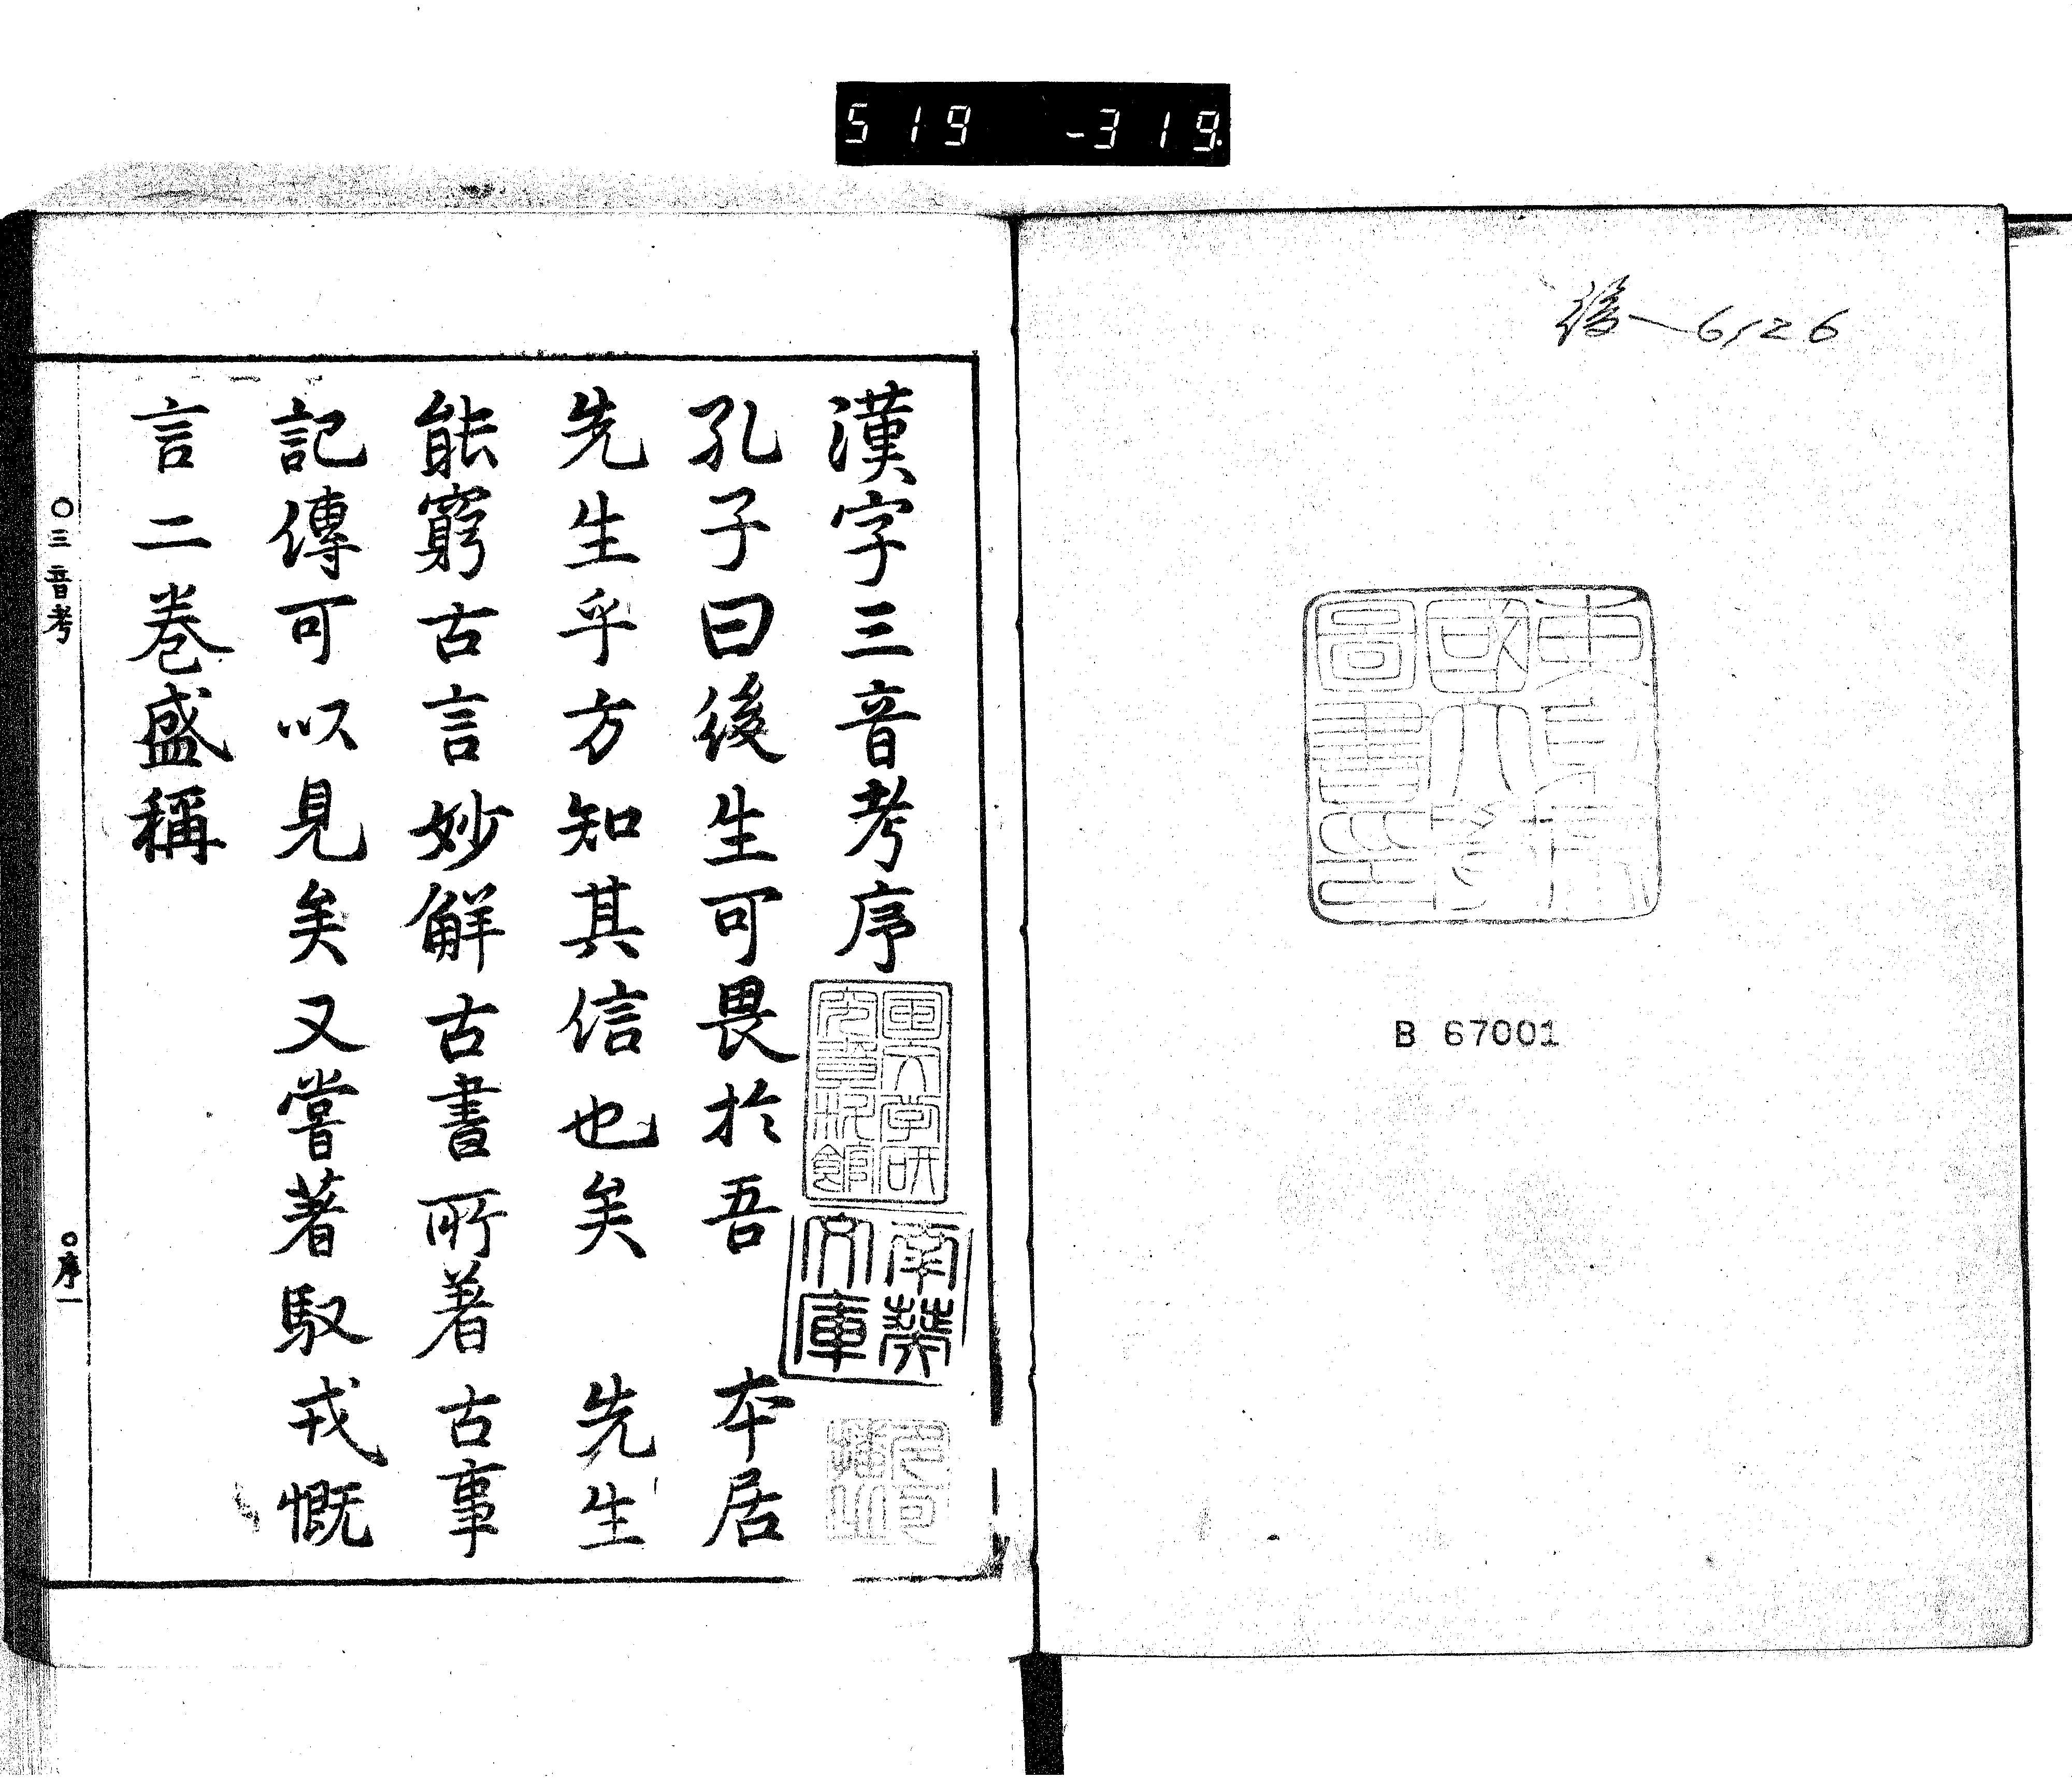 519 -319.
後-6,26
東京帝國大學圖書印
B 67001
漢字三音考序
國文学研究資料館
南葵文庫
孔子曰後生可畏於吾　本居
先生乎方知其信也矣　先生
能窮古言妙解古書所著古事
記傳可以見矣又嘗著馭戎慨
言二卷盛稱
○三音考
○序一